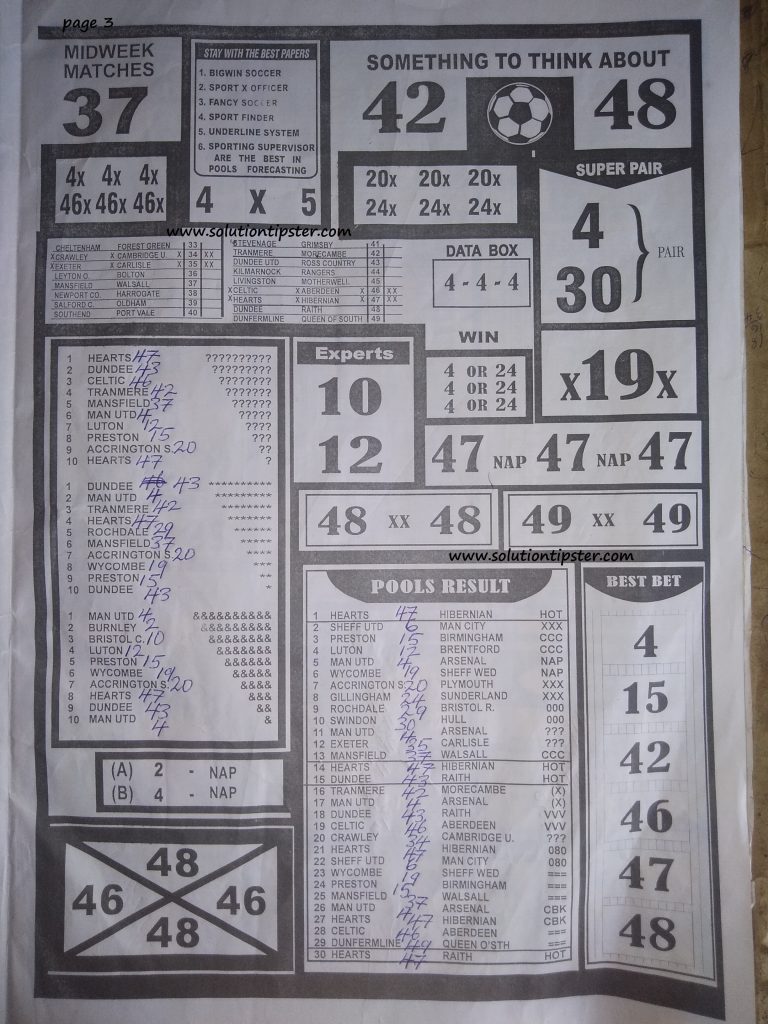 page 3
MIDWEEK
MATCHES
37
STAY WITH THE BEST PAPERS
1. BIGWIN SOCCER
2. SPORT X OFFICER
3. FANCY SOCCER
4. SPORT FINDER
5. UNDERLINE SYSTEM
6. SPORTING SUPERVISOR
ARE THE BEST IN
POOLS FORECASTING
SOMETHING TO THINK ABOUT
42 48
4x 4x 4x
46x 46x 46x
4 X 5
20x 20x 20x
24x 24x 24x
SUPER PAIR
4
30
PAIR
www.solutiontipster.com
CHELTENHAM FOREST GREEN 33
X CRAWLEY X CAMBRIDGE U. X 34 XX
X EXETER X CARLISLE X 35 XX
LEYTON O. BOLTON 36
MANSFIELD WALSALL 37
NEWPORT CO. HARROGATE 38
SALFORD C. OLDHAM 39
SOUTHEND PORT VALE 40
STEVENAGE GRIMSBY 41
TRANMERE MORECAMBE 42
DUNDEE UTD ROSS COUNTRY 43
KILMARNOCK RANGERS 44
LIVINGSTON MOTHERWELL 45
X CELTIC X ABERDEEN X 46 XX
X HEARTS X HIBERNIAN X 47 XX
DUNDEE RAITH 48
DUNFERMLINE QUEEN OF SOUTH 49
DATA BOX
4 - 4 - 4
WIN
4 OR 24
4 OR 24
4 OR 24
X19X
1 HEARTS 47 ??????????
2 DUNDEE 43 ?????????
3 CELTIC 46 ????????
4 TRANMERE 42 ???????
5 MANSFIELD 37 ??????
6 MAN UTD 4 ?????
7 LUTON 12 ????
8 PRESTON 15 ???
9 ACCRINGTON S. 20 ??
10 HEARTS 47 ?
1 DUNDEE 43 *********
2 MAN UTD 4 *********
3 TRANMERE 42 ********
4 HEARTS 47 *******
5 ROCHDALE 29 ******
6 MANSFIELD 37 *****
7 ACCRINGTON S. 20 ****
8 WYCOMBE 19 ***
9 PRESTON 15 **
10 DUNDEE 43 *
1 MAN UTD 4 &&&&&&&&&&
2 BURNLEY 2 &&&&&&&&&
3 BRISTOL C. 10 &&&&&&&&
4 LUTON 12 &&&&&&&
5 PRESTON 15 &&&&&&
6 WYCOMBE 19 &&&&&
7 ACCRINGTON S. 20 &&&&
8 HEARTS 47 &&&
9 DUNDEE 43 &&
10 MAN UTD 4 &
Experts
10
12
47 NAP 47 NAP 47
48 XX 48
49 XX 49
www.solutiontipster.com
(A) 2 - NAP
(B) 4 - NAP
48
46 46
48
POOLS RESULT
1 HEARTS 47 HIBERNIAN HOT
2 SHEFF UTD 6 MAN CITY XXX
3 PRESTON 15 BIRMINGHAM CCC
4 LUTON 12 BRENTFORD CCC
5 MAN UTD 4 ARSENAL NAP
6 WYCOMBE 19 SHEFF WED NAP
7 ACCRINGTON S. 20 PLYMOUTH XXX
8 GILLINGHAM 24 SUNDERLAND XXX
9 ROCHDALE 29 BRISTOL R. 000
10 SWINDON 30 HULL 000
11 MAN UTD 4 ARSENAL ???
12 EXETER 35 CARLISLE ???
13 MANSFIELD 37 WALSALL CCC
14 HEARTS 47 HIBERNIAN HOT
15 DUNDEE 43 RAITH HOT
16 TRANMERE 42 MORECAMBE (X)
17 MAN UTD 4 ARSENAL (X)
18 DUNDEE 43 RAITH VVV
19 CELTIC 46 ABERDEEN VVV
20 CRAWLEY 34 CAMBRIDGE U. ???
21 HEARTS 47 HIBERNIAN 080
22 SHEFF UTD 6 MAN CITY 080
23 WYCOMBE 19 SHEFF WED ===
24 PRESTON 15 BIRMINGHAM ===
25 MANSFIELD 37 WALSALL ===
26 MAN UTD 4 ARSENAL CBK
27 HEARTS 47 HIBERNIAN CBK
28 CELTIC 46 ABERDEEN ===
29 DUNFERMLINE 49 QUEEN O'STH ===
30 HEARTS 47 RAITH HOT
BEST BET
4
15
42
46
47
48